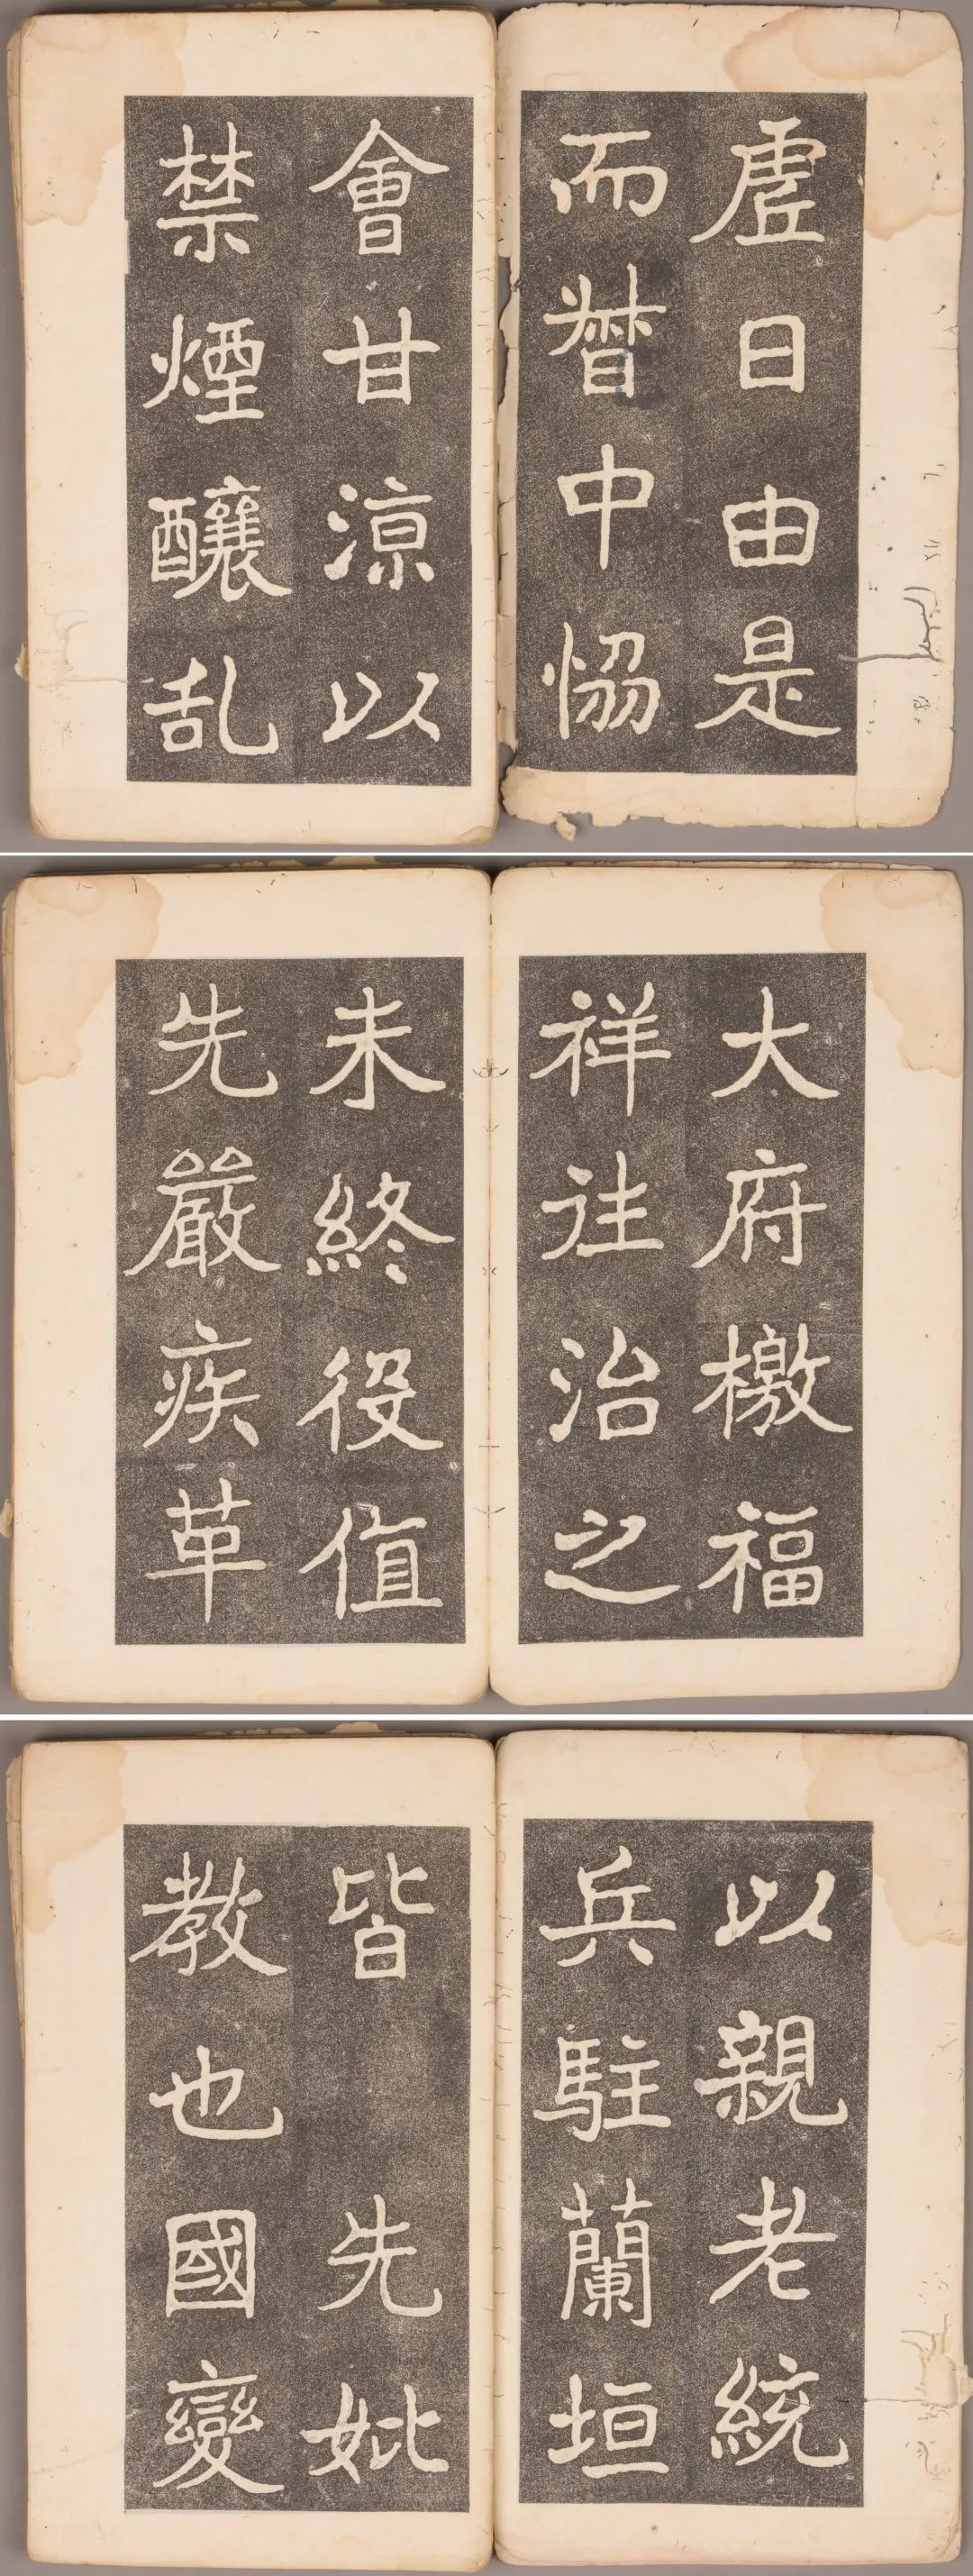 虛日由是
而朁中恊
會甘涼以
禁煙釀乱
大府檄福
祥往治之
未終役值
先嚴疾革
以親老統
兵駐蘭垣
皆 先妣
教也國變